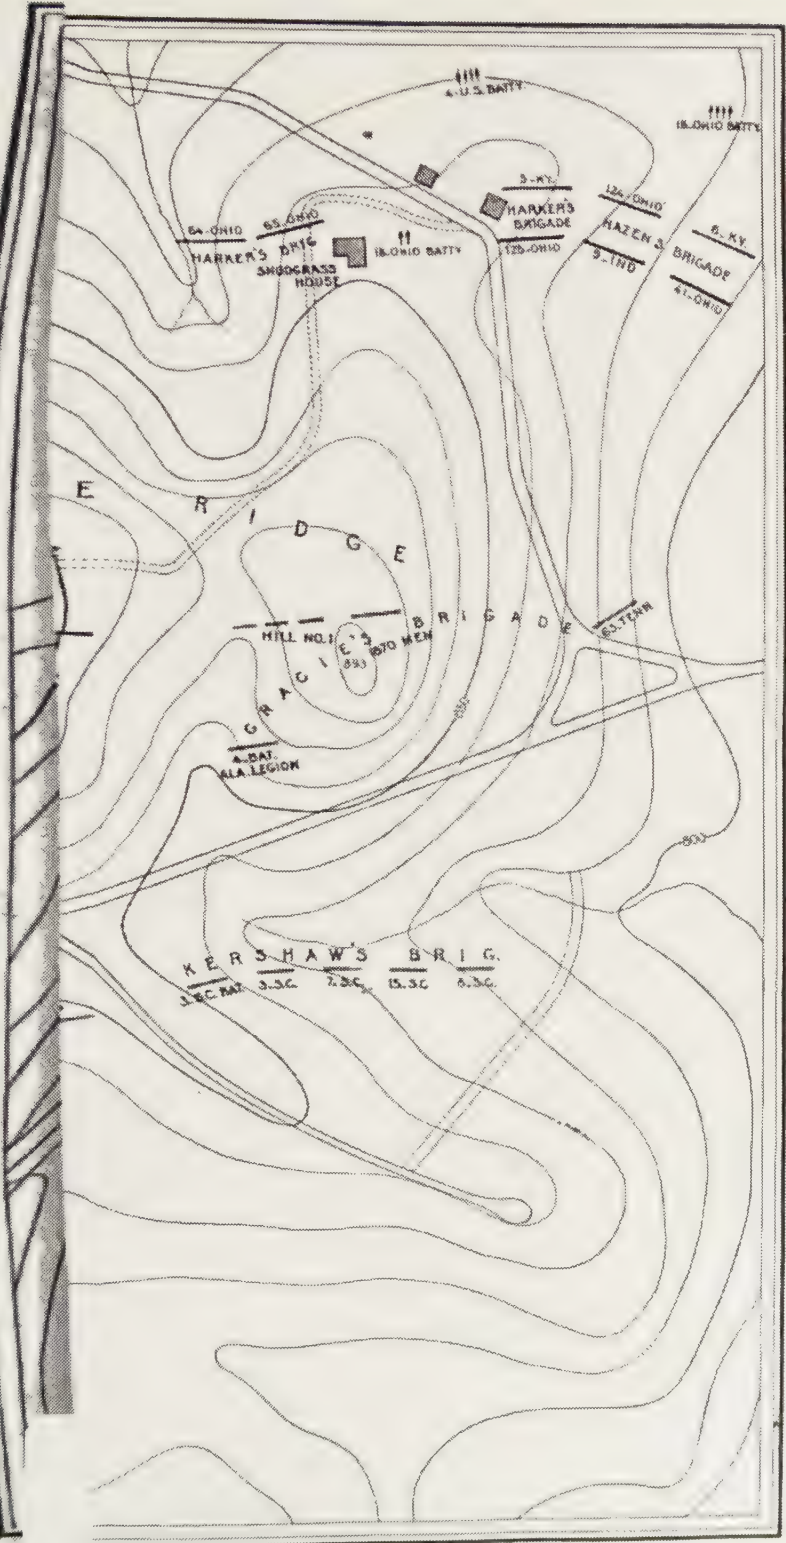 4-U.S. BATTY.
18-OHIO BATTY.
3-KY.
HARKER'S
BRIGADE
125-OHIO
124-OHIO
HAZEN'S BRIGADE
9-IND
6-KY.
41-OHIO
64-OHIO
65-OHIO
HARKER'S BRIG
18-OHIO BATTY
SNODGRASS
HOUSE
E RIDGE
HILL NO.1
893
GRACIE'S BRIGADE
1870 MEN
63-TENN
4-BAT.
ALA. LEGION
850
800
KERSHAW'S BRIG.
3-S.C. BAT.
3-S.C.
7-S.C.
15-S.C.
8-S.C.